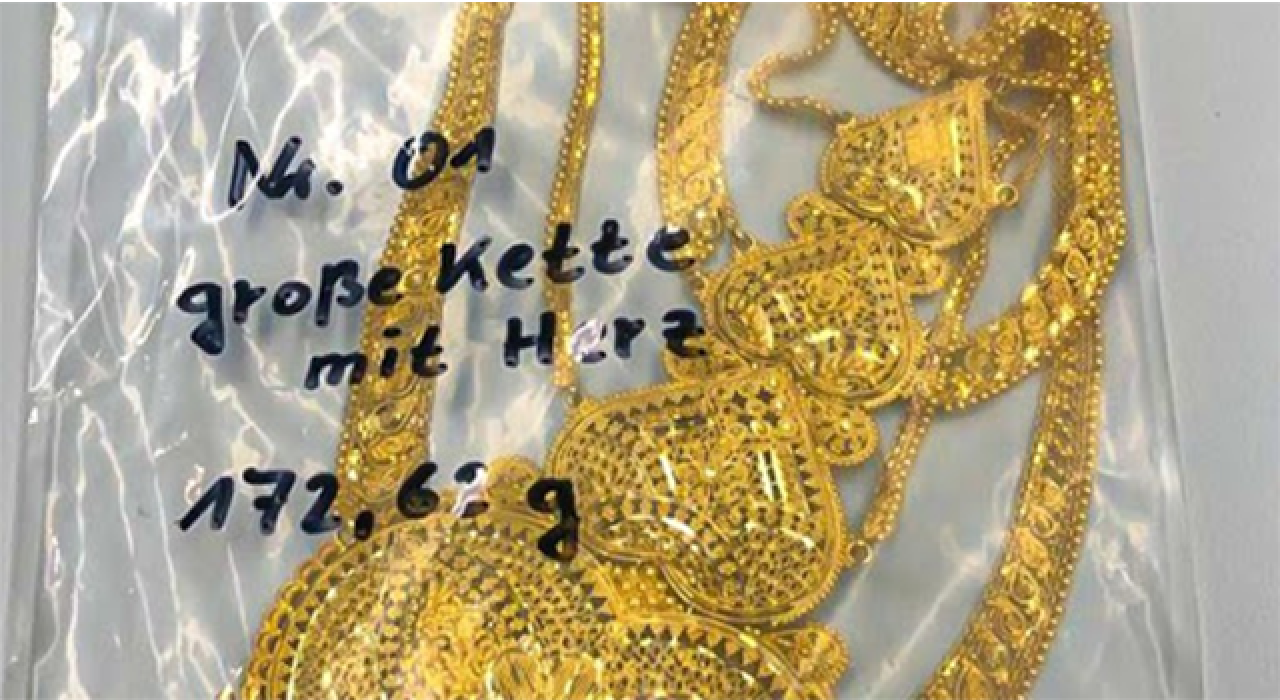 Nr. 01
große Kette
mit Herz
172,62 g